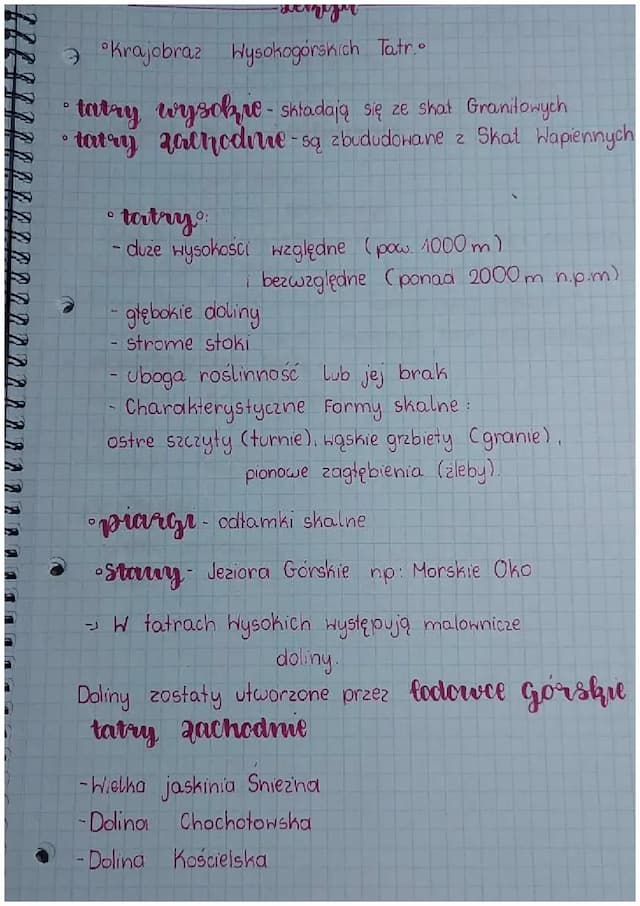 °Krajobraz Wysokogórskich Tatr.°
° tatry wysokie - składają się ze skał Granitowych
° tatry zachodnie - są zbududowane z Skał Wapiennych
° tatry°:
- duże wysokości względne (pow. 1000 m)
i bezwzględne (ponad 2000 m n.p.m)
- głębokie doliny
- strome stoki
- uboga roślinność lub jej brak
- Charakterystyczne Formy skalne :
ostre szczyty (turnie), wąskie grzbiety (granie),
pionowe zagłębienia (żleby).
°piargi - odłamki skalne
°stawy - Jeziora Górskie np: Morskie Oko
→ W tatrach Wysokich występują malownicze
doliny.
Doliny zostały utworzone przez lodowce górskie
tatry zachodnie
- Wielka jaskinia Śnieżna
- Dolina Chochołowska
- Dolina Kościelska